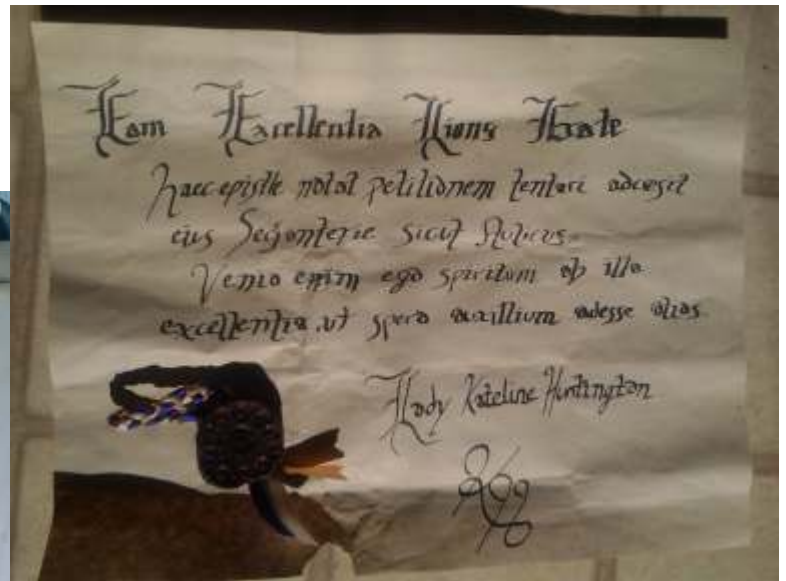 Eam Excellentia Lions Gate
haec epistle notat petitionem tentari
eius sicut
Venio enim ego spiritum ab illa
excellentia ut spero auxillium adesse alias
Lady Kateline Huntington